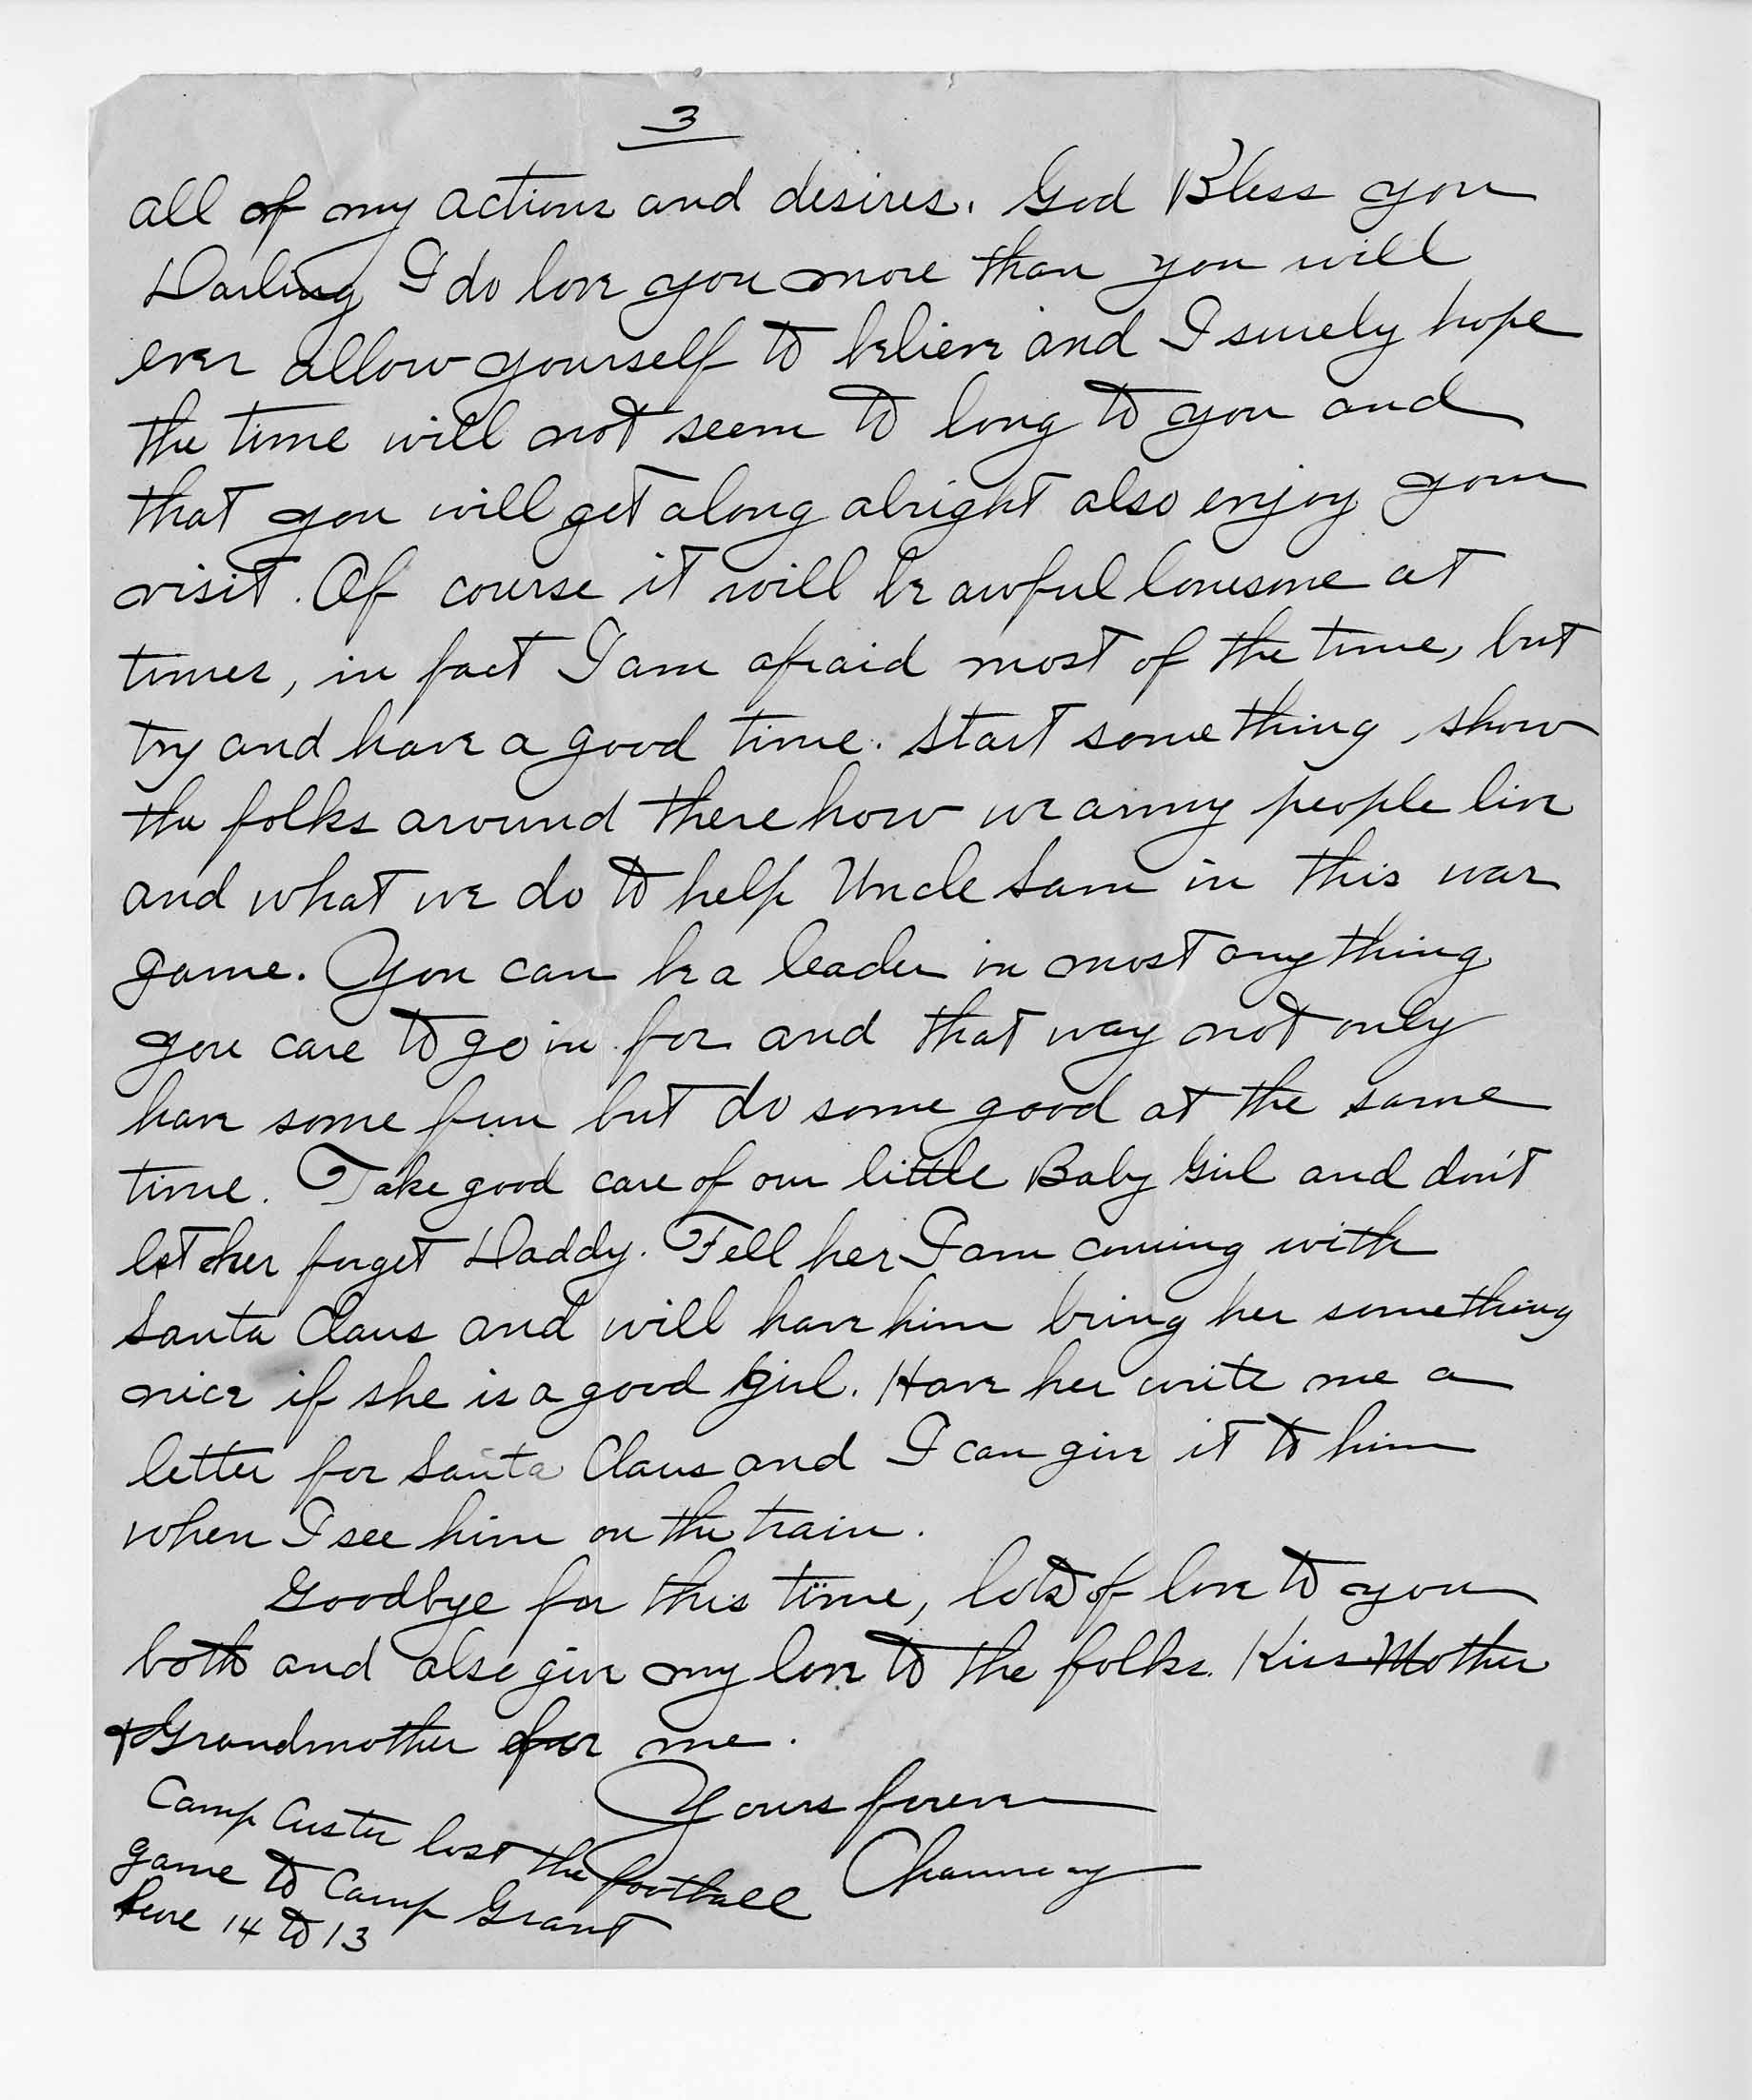 3
all of my actions and desires. God Bless you
Darling I do love you more than you will
ever allow yourself to believe and I surely hope
the time will not seem to long to you and
that you will get along alright also enjoy your
visit. Of course it will be awful lonesome at
times, in fact I am afraid most of the time, but
try and have a good time. Start something, show
the folks around there how we army people live
and what we do to help Uncle Sam in this war
game. You can be a leader in most anything
you care to go in for and that way not only
have some fun but do some good at the same
time. Take good care of our little Baby Girl and don't
let her forget Daddy. Tell her I am coming with
Santa Claus and will have him bring her something
nice if she is a good girl. Have her write me a
letter for Santa Claus and I can give it to him
when I see him on the train.
Goodbye for this time, lots of love to you
both and also give my love to the folks. Kiss Mother
& Grandmother for me.
Yours forever
Chauncey
Camp Custer lost the football
game to Camp Grant
here 14 to 13